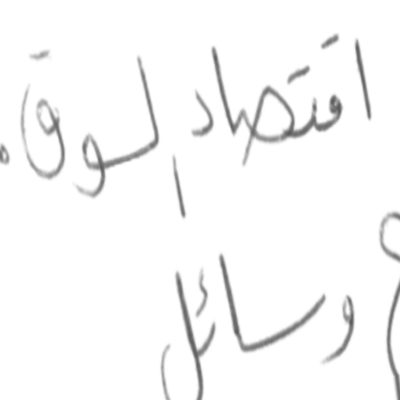 اقتصاد السوق
وسائل